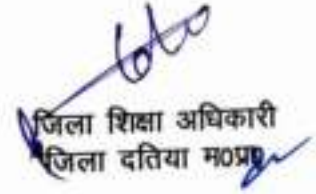 जिला शिक्षा अधिकारी
जिला दतिया म०प्र०